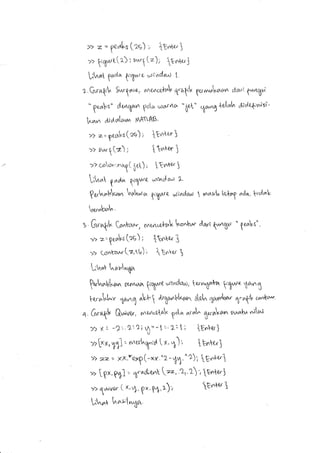 >> z = peaks(25); {Enter}
>> figure(2): surf(z); {Enter}
Lihat pada figure window 1
2. Grafik Surface, mencetak grafik permukaan dari fungsi
"peaks" dengan pola warna "jet" yang telah didefinisi-
kan didalam MATLAB.
>> z = peaks(25); {Enter}
>> surf(z); {Enter}
>> colormap(jet); {Enter}
Lihat pada figure window 2.
Perhatikan bahwa figure window 1 masih tetap ada, tidak
berubah.
3. Grafik Contour, mencetak kontur dari fungsi "peaks".
>> z = peaks(25); {Enter}
>> contour(z,16); {Enter}
Lihat hasilnya
Perhatikan semua figure window, ternyata figure yang
terakhir yang aktif digantikan oleh gambar grafik contour
4. Grafik Quiver, mencetak pola arah gerakan suatu nilai
>> x = -2:.2:2; y = -1:.2:1; {Enter}
>> [xx,yy] = meshgrid(x,y); {Enter}
>> zz = xx.*exp(-xx.^2-yy.^2); {Enter}
>> [px,py] = gradient(zz,.2,.2); {Enter}
>> quiver(x,y,px,py,2); {Enter}
Lihat hasilnya.